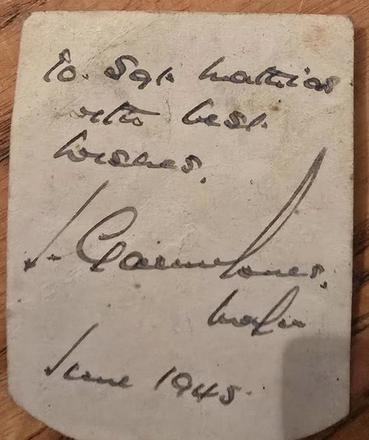 To. Sgt. Mathias
with best
wishes.
J. Jones.
Major
June 1945.